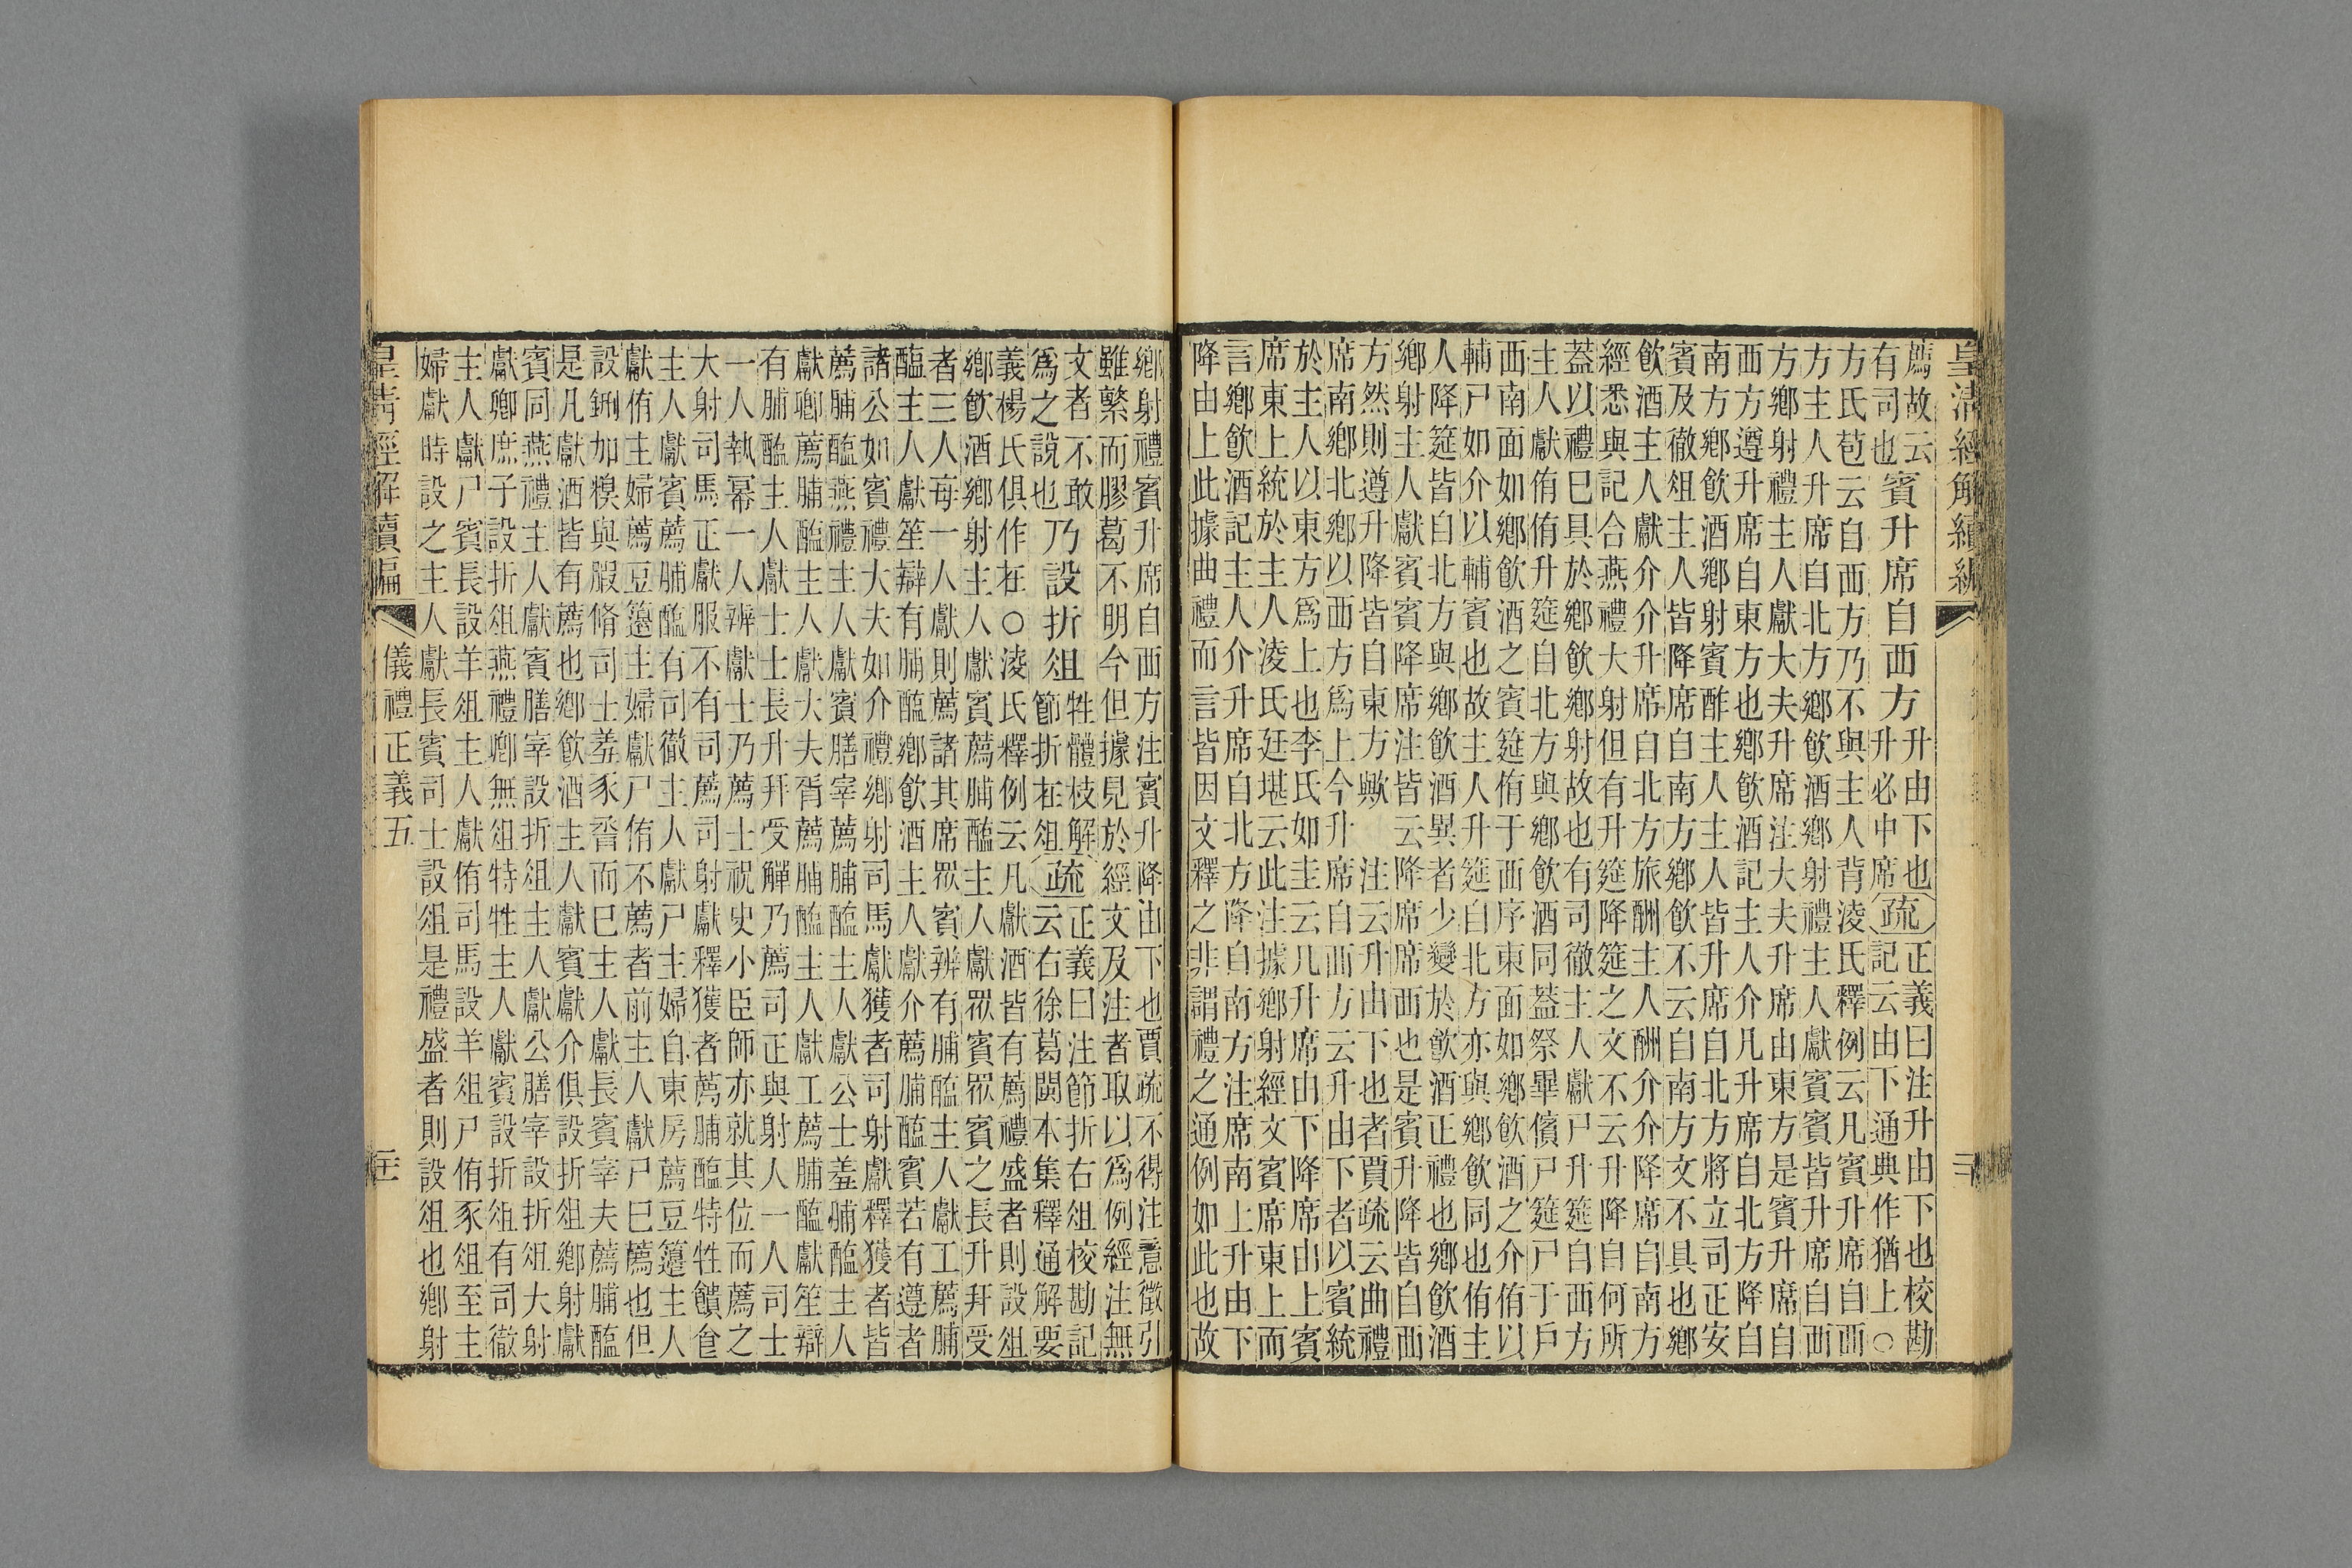 皇清經解續編
薦故云
有司也
賓升席自西方
升由下也
升必中席
疏
正義曰注升由下也校勘
記云由下通典作猶上○
方氏苞云自西方乃不與主人背淩氏釋例云凡賓升席自西
方主人升席自北方鄉飲酒鄉射禮主人獻賓賓皆升席自西
方鄉射禮主人獻大夫升席注大夫升席由東方是賓升席自
西方遵升席自東方也鄉飲酒記主人介凡升席自北方降自
南方鄉飲酒鄉射賓酢主人主人皆升席自北方將立司正安
賓及徹俎主人皆降席自南方鄉飲不云自南方文不具也鄉
飲酒主人獻介介升席自北方旅酬主人酬介介降席自南方
經悉與記合燕禮大射但有升筵降筵之文不云升降自何所
蓋以禮巳具於鄉飲鄉射故也有司徹主人獻尸尸升筵自西方
主人獻侑侑升筵自北方與鄉飲酒同蓋祭畢儐尸筵尸于戶
西南面如鄉飲酒之賓筵侑于西序東面如鄉飲酒之介侑以
輔尸如介以輔賓也故主人升筵自北方亦與鄉飲同也侑主
人降筵皆自北方與鄉飲酒異者少變於飲酒正禮也鄉飲酒
鄉射主人獻賓賓降席注皆云降席席西也是賓升降皆自西
方然則遵升降皆自東方歟 注云升由下也者賈疏云曲禮
席南鄉北鄉以西方爲上今升席自西方云升由下者以賓統
於主人以東方爲上也李氏如圭云凡升席由下降席由上賓
席東上統於主人淩氏廷堪云此注據鄉射經文賓席東上而
言鄉飲酒記主人介升席自北方降自南方注席南上升由下
降由上此據曲禮而言皆因文釋之非謂禮之通例如此也故
鄉射禮賓升席自西方注賓升降由下也賈疏不得注意徵引
雖繁而膠葛不明今但據見於經文及注者取以爲例經注無
文者不敢
爲之說也
乃設折俎
牲體枝解
節折在俎
疏
正義曰注節折右俎校勘記
云右徐葛閩本集釋通解要
義楊氏俱作在○淩氏釋例云凡獻酒皆有薦禮盛者則設俎
鄉飲酒鄉射主人獻賓薦脯醢主人獻眾賓眾賓之長升拜受
者三人每一人獻則薦諸其席眾賓辨有脯醢主人獻工薦脯
醢主人獻笙辯有脯醢鄉飲酒主人獻介薦脯醢賓若有遵者
諸公如賓禮大夫如介禮鄉射司馬獻獲者司射獻釋獲者皆
薦脯醢燕禮主人獻賓膳宰薦脯醢主人獻公士羞脯醢主人
獻卿薦脯醢主人獻大夫胥薦脯醢主人獻工薦脯醢獻笙辯
有脯醢主人獻士士長升拜受觶乃薦司正與射人一人司士
一人執冪一人辨獻士乃薦士祝史小臣師亦就其位而薦之
大射司馬正獻服不有司薦司射獻釋獲者薦脯醢特牲饋食
主人獻賓薦脯醢有司徹主人獻尸主婦自東房薦豆籩主人
獻侑主婦薦豆籩主婦獻尸侑不薦者前主人獻尸巳薦也但
設鉶加糗與腶脩司士羞豕脀而巳主人獻長賓宰夫薦脯醢
是凡獻酒皆有薦也鄉飲酒主人獻賓獻介俱設折俎鄉射獻
賓同燕禮主人獻賓膳宰設折俎主人獻公膳宰設折俎大射
獻卿庶子設折俎燕禮卿無俎特牲主人獻賓設折俎有司徹
主人獻尸賓長設羊俎主人獻侑司馬設羊俎尸侑豕俎至主
婦獻時設之主人獻長賓司士設俎是禮盛者則設俎也鄉射
皇清經解續編
儀禮正義五